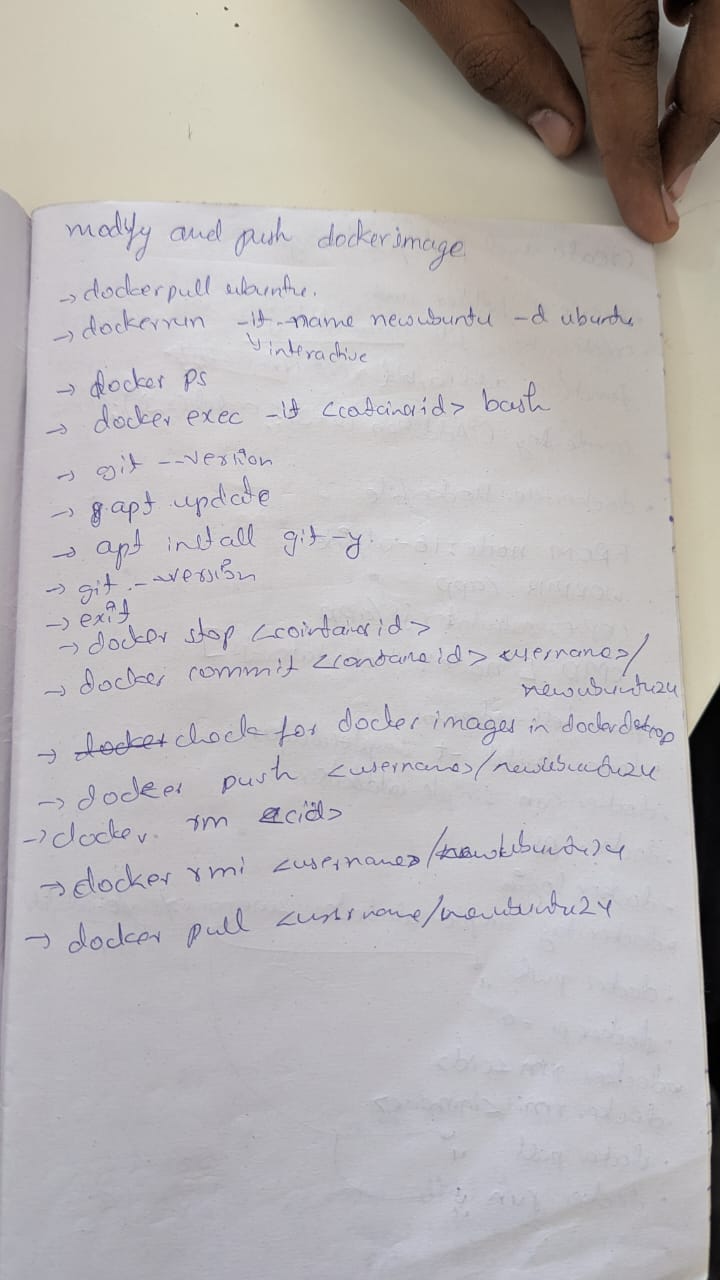 modify and push dockerimage
→ dockerpull ubuntu.
→ dockerrun -it --name newubuntu -d ubuntu
↳ interactive
→ docker ps
→ docker exec -it <containerid> bash
→ git --version
→ apt update
→ apt install git -y.
→ git --version
→ exit
→ docker stop <cointanerid>
→ docker commit <containeid> <username>/
newubuntu24
→ docker chock for docker images in dockerdsktop
→ docker push <username>/newubuntu24
→ docker rm <cid>
→ docker rmi <username>/newubuntu24
→ docker pull <username/newubuntu24